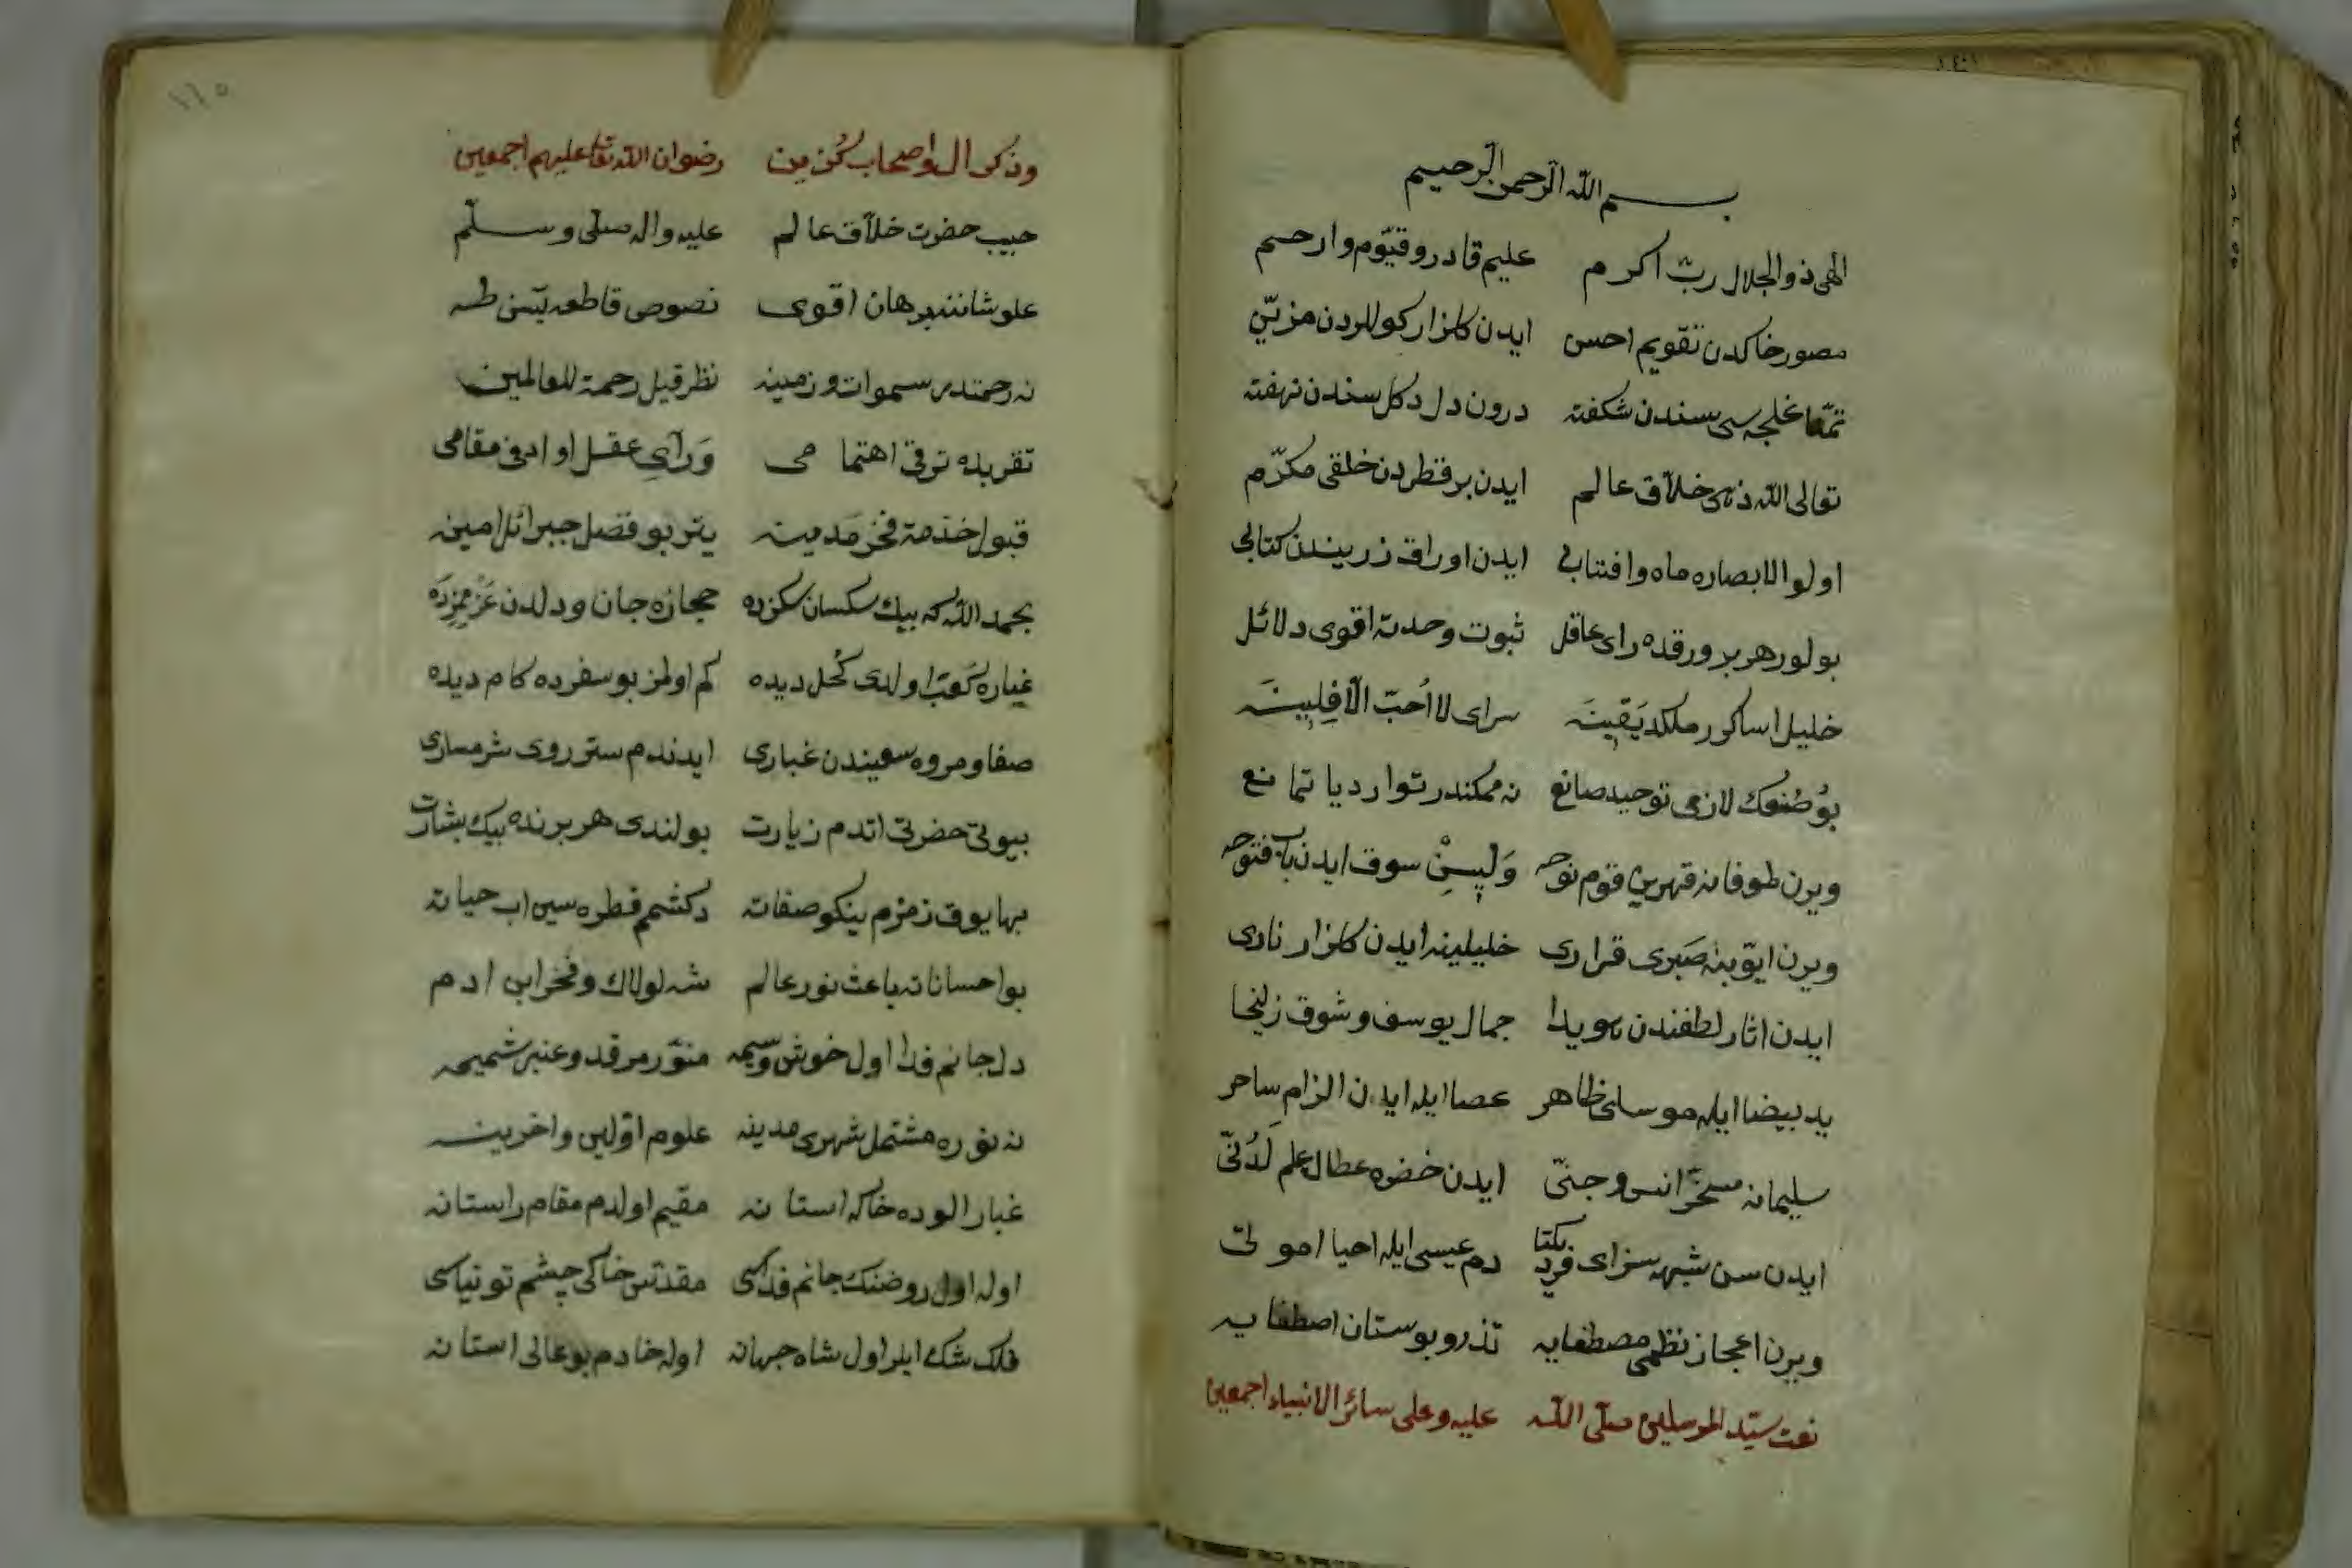 بسم الله الرحمن الرحيم
الهى ذو الجلال ربّ اكرم عليم قادر و قيّوم و ارحم
مصور خاكدن تقويم احسن ايدن كلزار كوللردن مزيّن
تمنّا غلجه سى سندن شكفته درون دل دكل سندن نهفته
تعالى الله ذهى خلاّق عالم ايدن بر قطردن خلقى مكرّم
اولو الابصاره ماه وافتابى ايدن اوراق زريندن كتابى
بولور هر بر ورقده راى عاقل ثبوت وحدته اقوى دلائل
خليل اساكور ملكد يَقِينَه سراى لا اُحبّ الآفِلِينَه
بوُ صُنعك لازمى توحيد صانع نه ممكندر توارد يا تمانع
ويرن طوفانه قهرين قوم نوحه سوق ايدن باب فتوحه
ويرن ايوّبنه صَبرى قرارى خليلينه ايدن كلزار نارى
ايدن اثار لطفندن هويدا جمال يوسف و شوق زليخا
يد بيضا ايله موسى ظاهر عصا ايله ايدن الزام ساحر
سليمانه مسخّر انس و جنىّ ايدن خضره عطا علم لَدُنّى
ايدن سن شبهه سزاى فرد يكتا دم عيسى ايله احيا اموتى
ويرن اعجاز نظمى مصطفايه تذرو بوستان اصطفايه
نعت سيّد المرسلين صلّى الله عليه وعلى سائر الانبياء اجمعين
وذكر ال واصحاب كزين رضوان الله تعا عليهم اجمعين
حبيب حضرت خلاّق عالم عليه واله صلّى وسلّم
علو شاننه برهان اقوى نصوص قاطعه يسن طه
نه رحمتدر سموات و زمينه نظر قيل رحمة للعالمينه
تقربده ترقى اهتمامى وَرآىِ عقل او ادنى مقامى
قبول خذمة فخر مَدينه يتر بو فضل جبرائل امينه
بحمد الله كه بيك سكسان سكزده حجازه جان ودلدن عَزممزدَه
غباره كعبَه اولدى كُحل ديده كم اولمز بو سفرده كام ديده
صفا و مروه سعيندن غبارى ايدندم ستر روى شرمسارى
بيوتى حضرتى اتدم زيارت بولندى هر برنده بيك بشارت
بها يوق زمزم نيكو صفاته دكشمم قطره سين اب حياته
بو احساناته باعث نور عالم شه لولاك و فخر ابن ادم
دل جانم فدا اول خوش وسيمه منوّر مرقد و عنبر شميمه
نه نوره مشتمل شهرى مدينه علوم اوّلين واخرينه
غبار الوده خاكه استانه مقيم اولدم مقام راستانه
اوله اول روضنك جانم فداسى مقدّس خاكى چشم توتياسى
فلك شك ايلر اول شاه جهانه اوله خادم بو عالى استانه